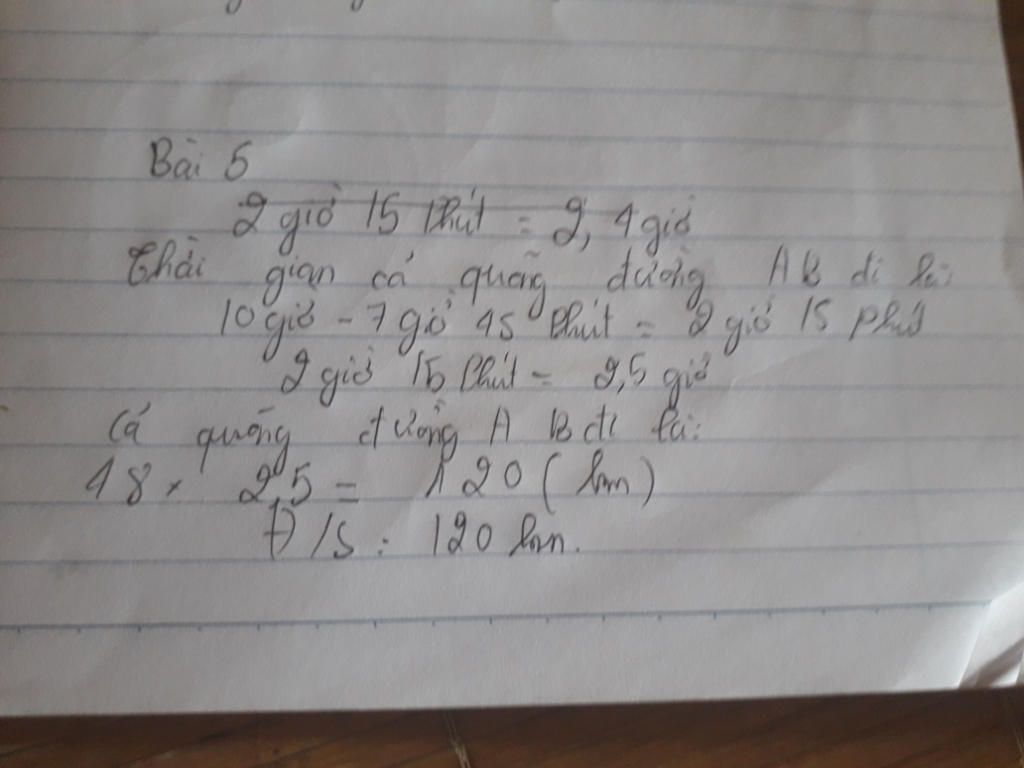 Bài 5
2 giờ 15 phút = 2, 4 giờ
Thời gian cả quãng đường AB đi là:
10 giờ - 7 giờ 45 phút = 2 giờ 15 phút
2 giờ 15 phút = 2,5 giờ
Cả quãng đường A B đi là:
48 × 2,5 = 120 (km)
Đ/S: 120 km.